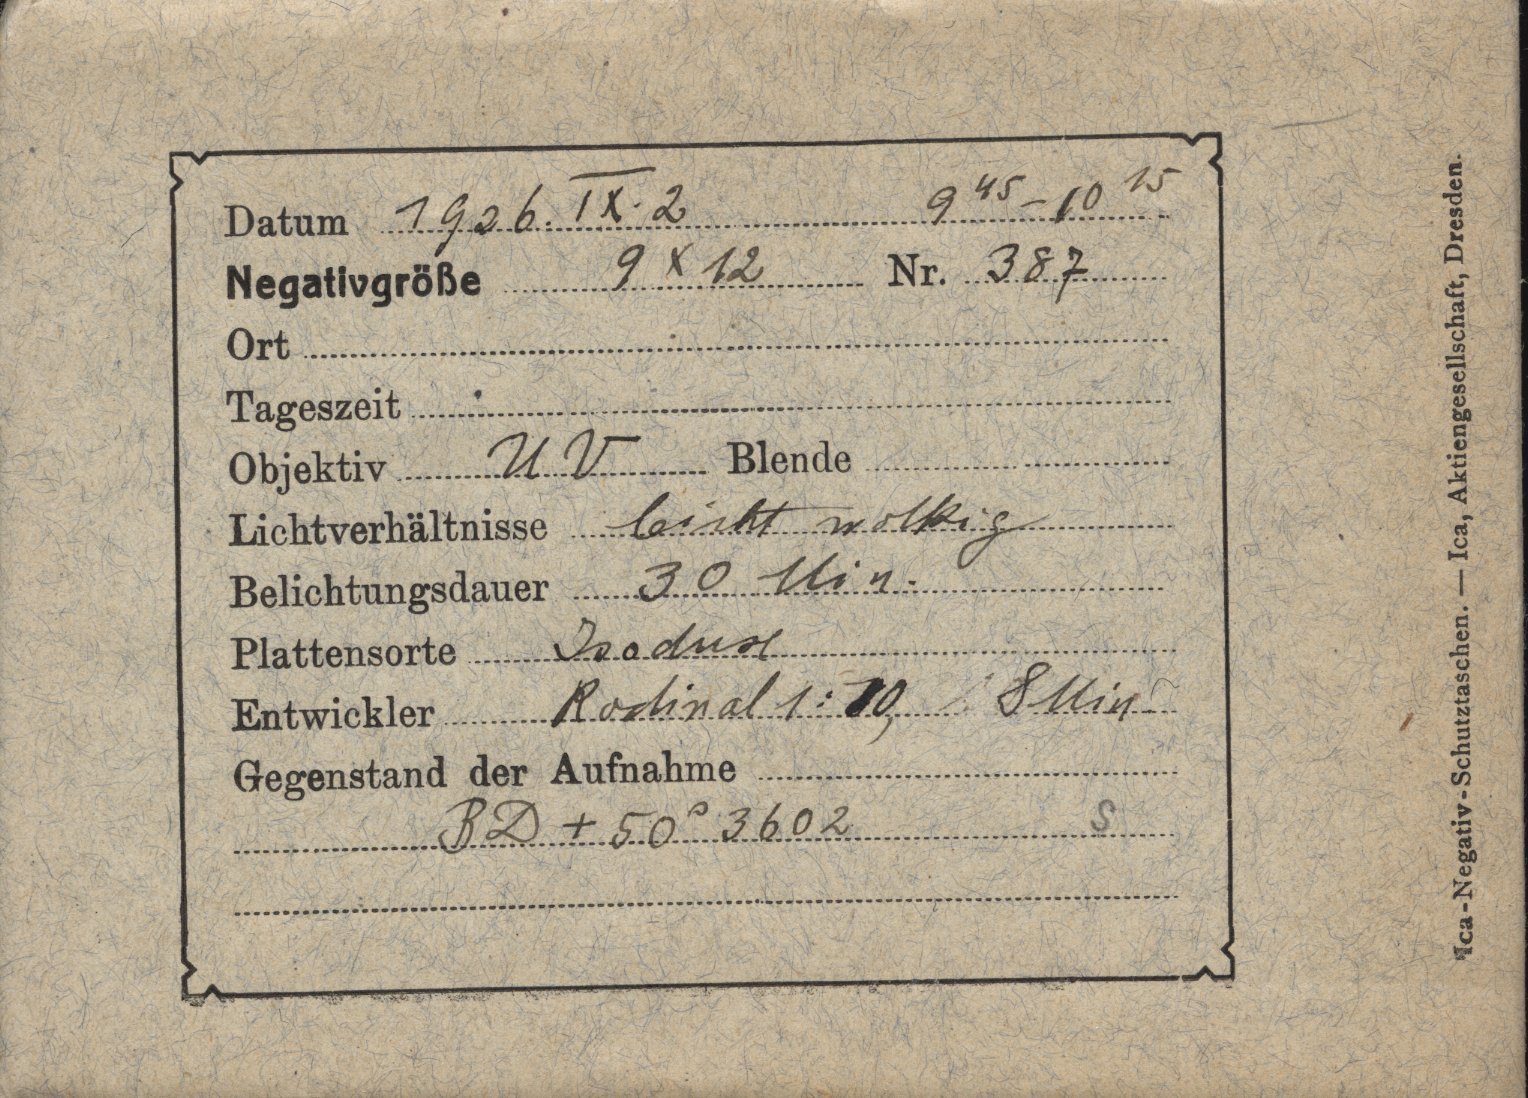 Datum 1926. IX. 2 9 45 - 10 15
Negativgröße 9 x 12 Nr. 387
Ort
Tageszeit
Objektiv UV Blende
Lichtverhältnisse leicht wolkig
Belichtungsdauer 30 Min.
Plattensorte Isodux
Entwickler Rodinal 1:10, 8 Min
Gegenstand der Aufnahme
BD + 50° 3602 S
Ica-Negativ-Schutztaschen. — Ica, Aktiengesellschaft, Dresden.